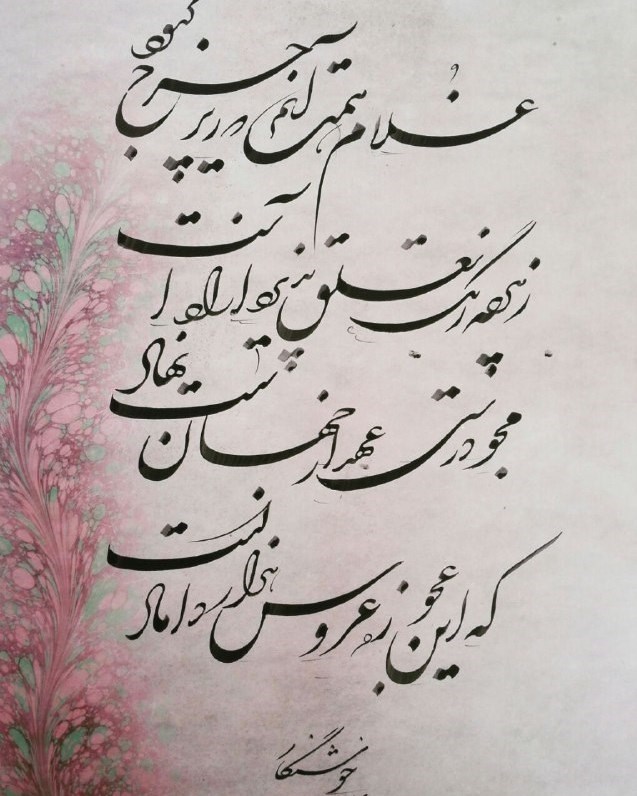 غلام همت آنم که زیر چرخ کبود
ز هرچه رنگ تعلق پذیرد آزاد است
مجو درستی عهد از جهان سست نهاد
که این عجوز عروس هزار داماد است
خوشنگار